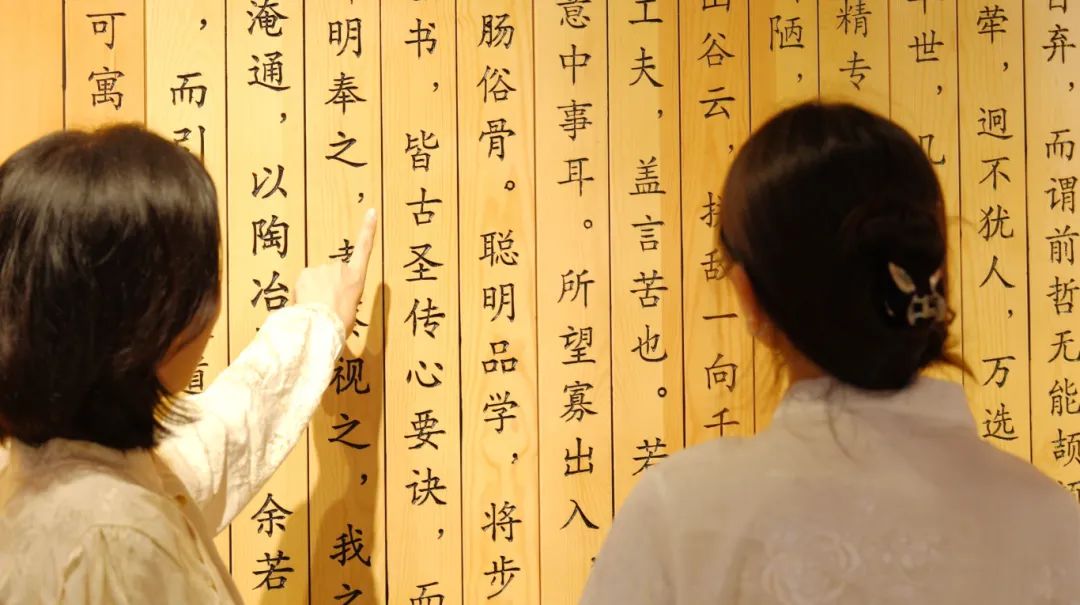 弃，而谓前哲无能颉
荤，迥不犹人，万选
世，几
精专
陋，
山谷云，敌一向千
工夫，盖言苦也。若
意中事耳。所望寡出入，
肠俗骨。聪明品学，将步
书，皆古圣传心要诀，而
明奉之，视之，我之
淹通，以陶冶余若
，而引
可寓